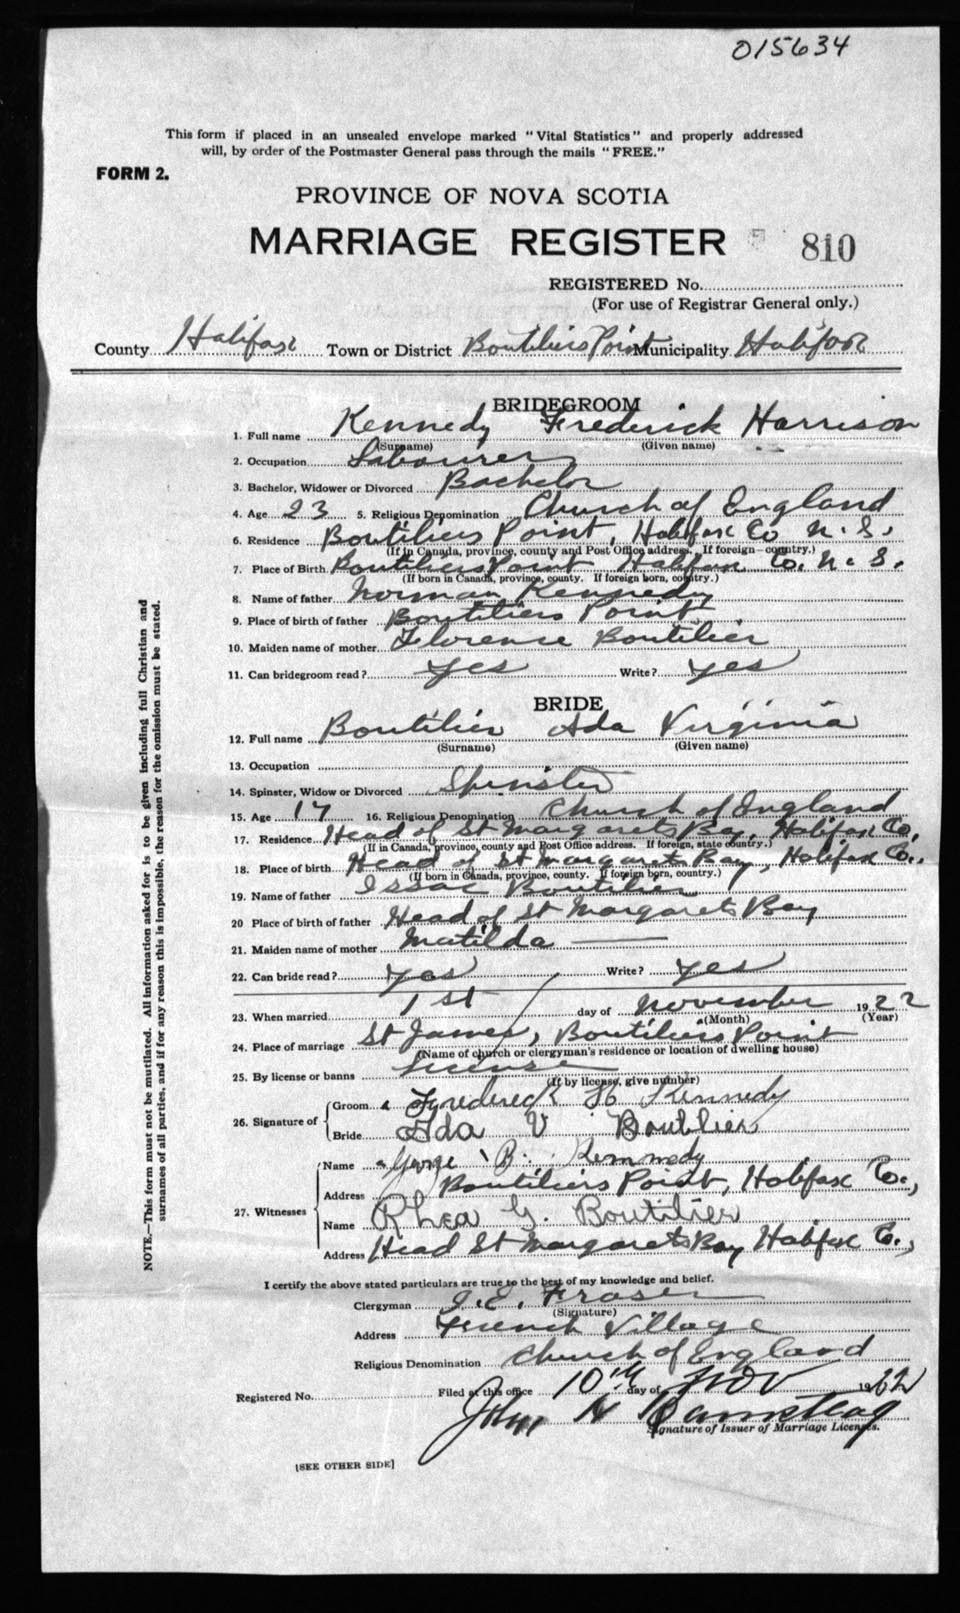 015634
This form if placed in an unsealed envelope marked "Vital Statistics" and properly addressed
will, by order of the Postmaster General pass through the mails "FREE."
FORM 2.
PROVINCE OF NOVA SCOTIA
MARRIAGE REGISTER 810
REGISTERED No.
(For use of Registrar General only.)
County Halifax Town or District Boutiliers Point Municipality Halifax
BRIDEGROOM
1. Full name Kennedy Frederick Harrison
(Surname) (Given name)
2. Occupation Labourer
3. Bachelor, Widower or Divorced Bachelor
4. Age 23 5. Religious Denomination Church of England
6. Residence Boutiliers Point, Halifax Co N. S.
(If in Canada, province, county and Post Office address. If foreign—country.)
7. Place of Birth Boutiliers Point Halifax Co. N. S.
(If born in Canada, province, county. If foreign born, country.)
8. Name of father Norman Kennedy
9. Place of birth of father Boutiliers Point
10. Maiden name of mother Florence Boutilier
11. Can bridegroom read? Yes Write? Yes
BRIDE
12. Full name Boutilier Ada Virginia
(Surname) (Given name)
13. Occupation
14. Spinster, Widow or Divorced Spinster
15. Age 17 16. Religious Denomination Church of England
17. Residence Head of St Margarets Bay, Halifax Co.
(If in Canada, province, county and Post Office address. If foreign, state country.)
18. Place of birth Head of St Margarets Bay, Halifax Co.
(If born in Canada, province, county. If foreign born, country.)
19. Name of father Issac Boutilier
20 Place of birth of father Head of St Margarets Bay
21. Maiden name of mother Matilda —
22. Can bride read? Yes Write? Yes
23. When married 1st day of November 1922
(Month) (Year)
24. Place of marriage St James, Boutiliers Point
(Name of church or clergyman's residence or location of dwelling house)
25. By license or banns License
(If by license, give number)
26. Signature of Groom Frederick H Kennedy
Bride Ada V Boutilier
27. Witnesses Name George B. Kennedy
Address Boutiliers Point, Halifax Co.,
Name Rhea G. Boutilier
Address Head St Margarets Bay Halifax Co.,
I certify the above stated particulars are true to the best of my knowledge and belief.
Clergyman Fraser
(Signature)
Address French Village
Religious Denomination Church of England
Registered No. Filed at this office 10th day of Nov 1922
John H
Signature of Issuer of Marriage Licenses.
[SEE OTHER SIDE]
NOTE.—This form must not be mutilated. All information asked for is to be given including full Christian and
surnames of all parties, and if for any reason this is impossible, the reason for the omission must be stated.